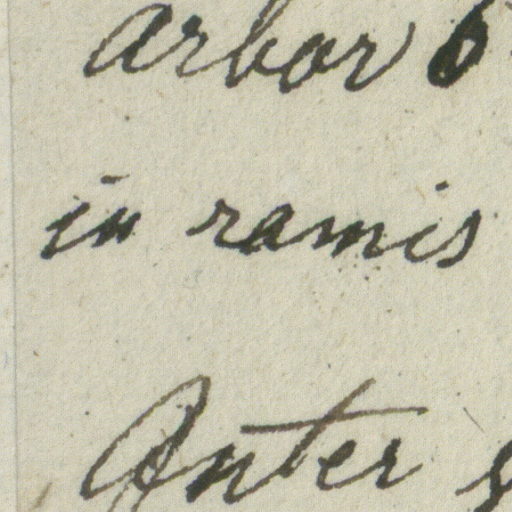 arbor 6
in ramis
Anter